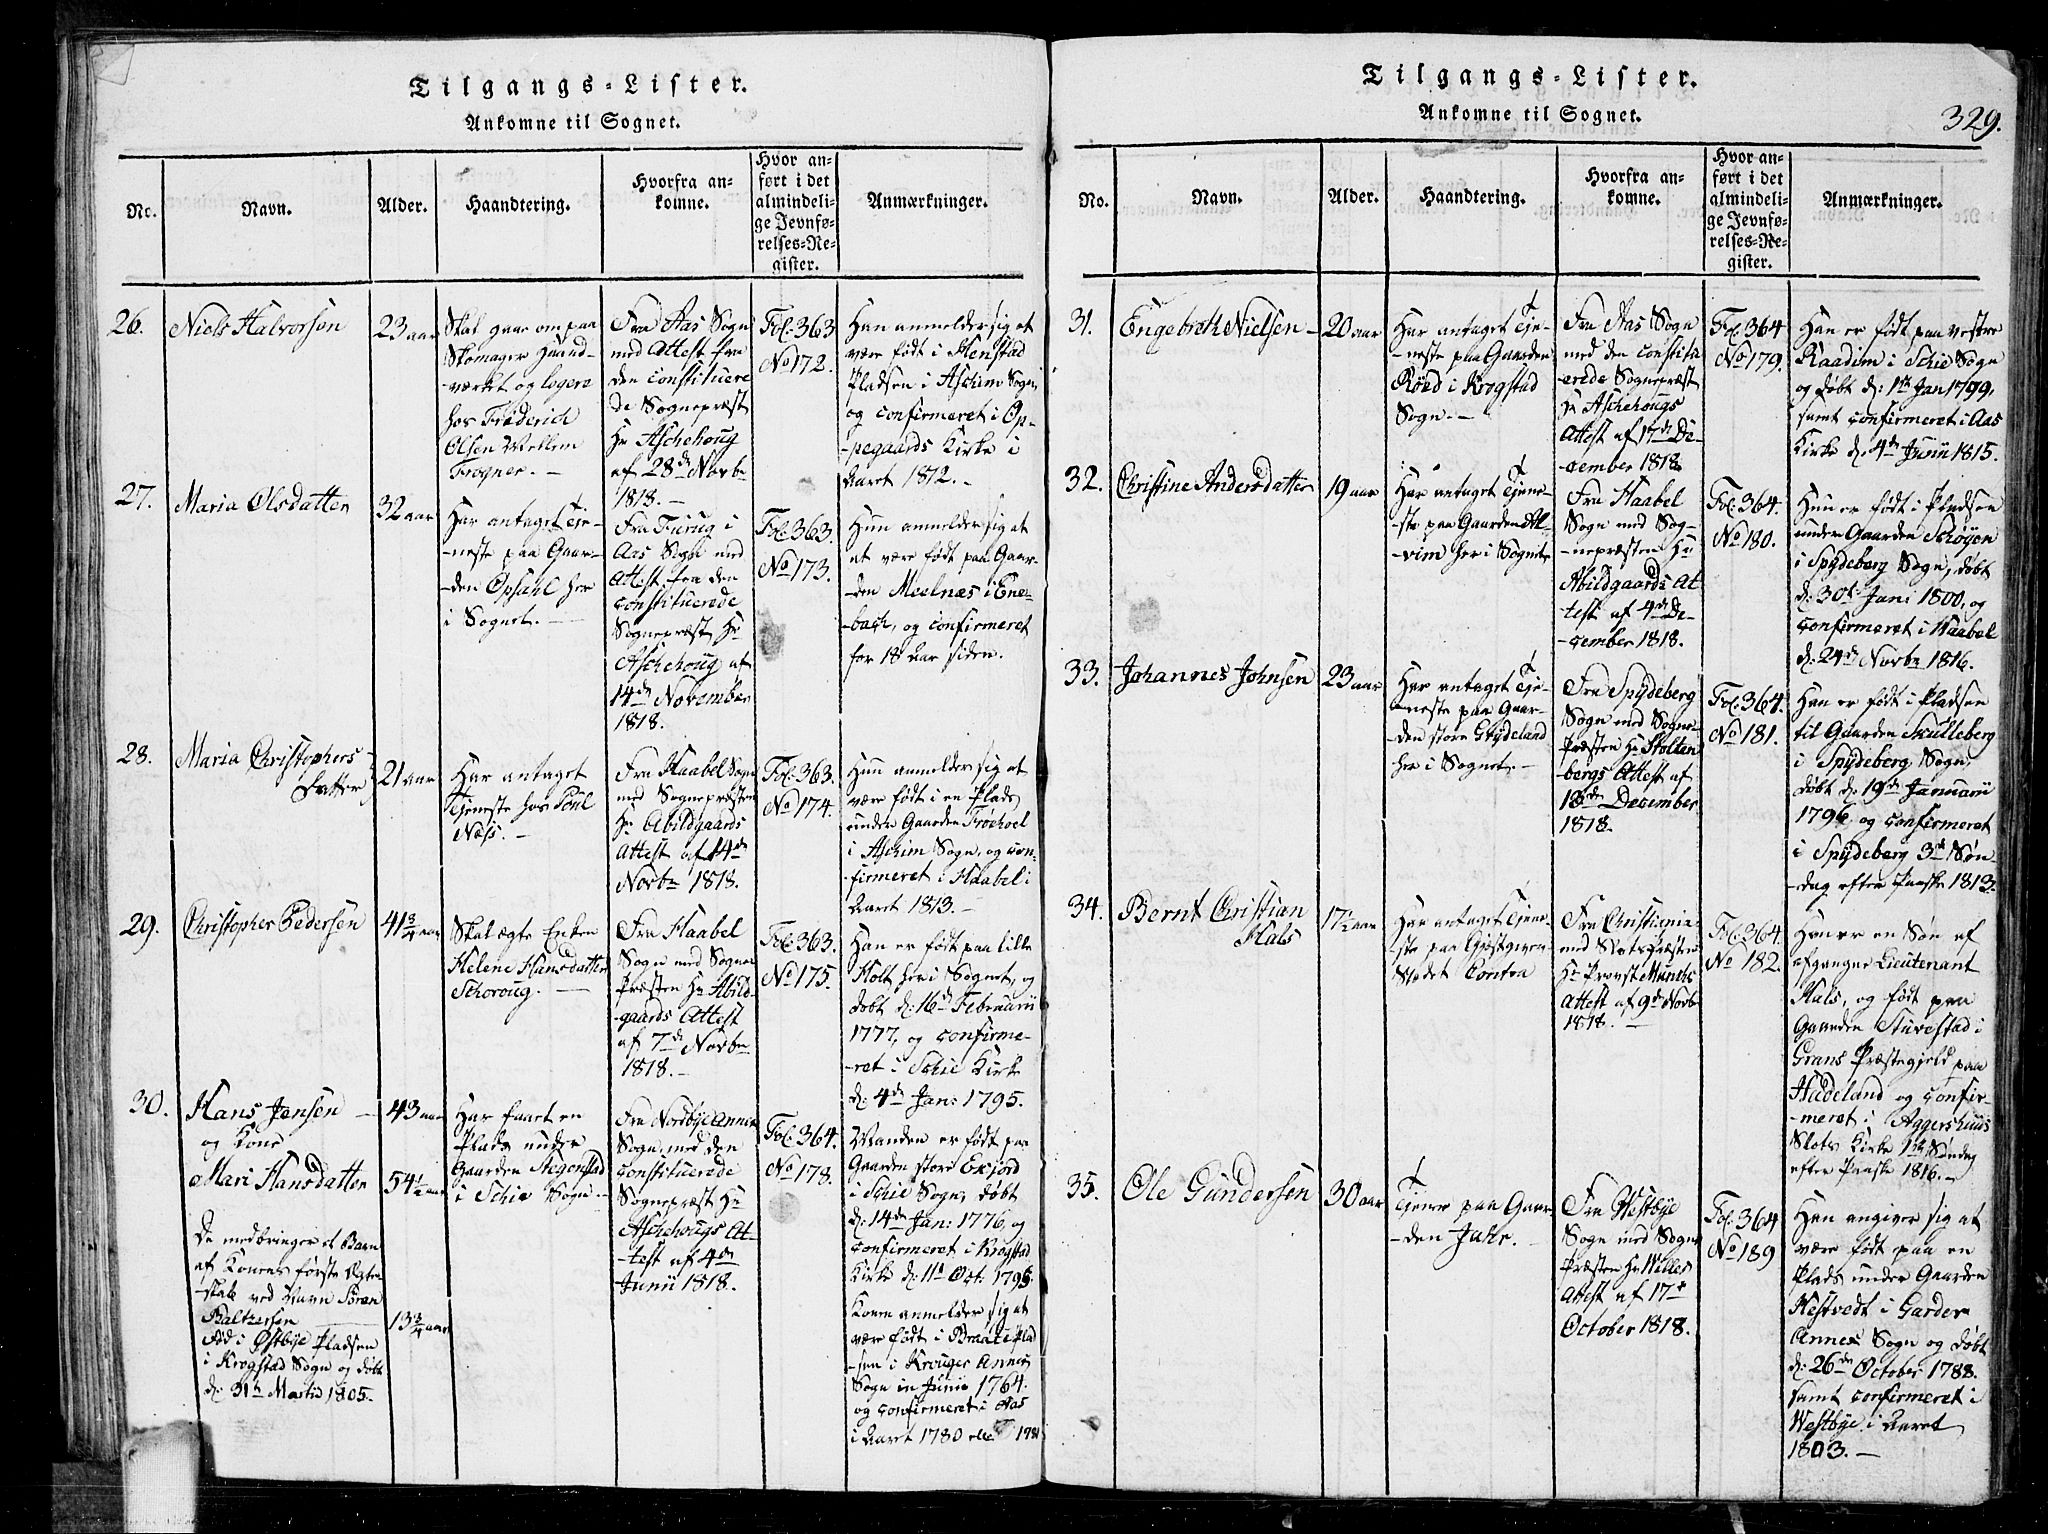 Tilgangs-Lister.
Ankomne til Sognet.
No.
Navn.
Alder.
Haandtering.
Hvorfra an-
komne.
Hvor an-
ført i det
almindeli-
ge Jevnfø-
relses-Re-
gister.
Anmærkninger.
26.
Niels Halvorsen
23 aar
Skal gaae om paa
Skomager Haand-
værket og logere
hos Frederich
Olsen Mellem
Frogner. -
Fra Aas Sogn
med Attest fra
den constituere
de Sognepræst
Hr Aschehoug
af 28de Novbr
1818. -
Fol: 363
No 172.
Han anmelder sig at
være født i Henstad
Pladsen i Aschim Sogn,
og confirmeret i Op-
-pegaards Kirke i
Aaret 1812. -
27.
Maria Olsdatter
32 aar
Har antaget Tje-
-neste paa Gaar-
-den Opsahl her
i Sognet. -
Fra Furug i
Aas Sogn med
Attest fra den
constituerede
Sognepræst Hr
Aschehoug af
14de November
1818.
Fol: 363.
No 173.
Hun anmelder sig at
at være født paa Gaar-
-den Meelnæs i Ene-
-bach, og confirmeret
for 18 Aar siden.
28.
Maria Christophers
datter
21 aar
Har antaget
Tjeneste hos Poul
Næss. -
Fra Haabel Sogn
med Sognepræsten
Hr Abildgaards
Attest af 14de
Novbr 1818.
Fol: 363.
No 174.
Hun anmelder sig at
være født i en Plads
under Gaarden Frøehoel
i Aschim Sogn, og con-
-firmeret i Haabel i
Aaret 1813. -
29.
Christopher Pedersen
41 3/4 aar
Skal ægte Enken
Helene Hansdatter
Schoroug. -
Fra Haabel
Sogn med Sogne
Præsten Hr Abild-
-gaards Attest
af 7de Novbr
1818. -
Fol: 363.
No 175.
Han er født paa lille
Holt her i Sognet, og
døbt d: 16de Februarii
1777, og confirme-
-ret i Schie Kirke
d: 4de Jan: 1795.
30.
Hans Jensen -
og Kone
Mari Hansdatter
43 aar
54 1/2 aar
De medbringer et Barn
af Konens første Ægte-
-skab ved Navn Søren
Baltzersen
Fød i Østbye Pladsen
i Krogstad Sogn og døbt
d: 31te Martii 1805.
13 3/4 aar
Har faaet en
Plads under
Gaarden Stegenstad
i Schie Sogn -
Fra Nordbye Annex
Sogn, med den
constituerede
Sognepræst Hr
Aschehougs At-
-test af 4de
Junii 1818.
Fol: 364.
No 178.
Manden er født paa
Gaarden store Exjord
i Schie Sogn, døbt
d: 14de Jan: 1776, og
confirmeret i Krogstad
Kirke d: 11te Oct: 1795.
Konen anmelder sig at
være født i Braate Plad
-sen i Kroger Annex
Sogn in Junii 1764.
og confirmeret i Aas
i Aaret 1780 eller 1781
Tilgangs-Lister.
Ankomne til Sognet.
329.
No.
Navn.
Alder.
Haandtering.
Hvorfra an-
komne.
Hvor an-
ført i det
almindeli-
ge Jevnfø-
relses-Re-
gister.
Anmærkninger.
31.
Engebreth Nielsen -
20 aar
Har antaget Tje-
-neste paa Gaarden
Røed i Krogstad
Sogn. -
Fra Aas Sogn
med den constitu
-erede Sognepræst
Hr Aschehougs
Attest af 17de De-
cember 1818.
Fol: 364
No 179.
Han er født paa vestre
Raadim i Schie Sogn
og døbt d: 1te Jan 1799,
samt confirmeret i Aas
Kirke d: 4de Junii 1815.
32.
Christine Andersdatter
19 aar
Har antaget Tjene-
-ste paa Gaarden Al-
-vim her i Sognet
Fra Haabel
Sogn med Sog-
-nepræsten Hr
Abildgaards At-
test af 4de De-
-cember 1818.
Fol: 364.
No 180.
Hun er født i Pladsen
under Gaarden Schøyen
i Spydeberg Sogn, døbt
d: 30te Jani 1800, og
confirmeret i Haabel
d: 24de Novbr 1816.
33.
Johannes Johnsen
23 aar
Har antaget Tje-
-neste paa Gaar-
-den store Grydeland
her i Sognet. -
Fra Spydeberg
Sogn med Sogne
Præsten Hr Stolten
-bergs Attest af
18de December
1818.
Fol: 364.
No 181.
Han er født i Pladsen
til Gaarden Skulleberg
i Spydeberg Sogn,
døbt d: 19de Januarii
1796, og confirmeret
i Spydeberg 3de Søn-
-dag efter Paaske 1813.
34.
Bernt Christian
Hals
17 1/2 aar
Har antaget Tjene-
-ste paa Gjestgiver
Stedet Contra
Fra Christiania
med Slots Præsten
Hr Provst Munchs
Attest af 9de Novbr
1818. -
Fol: 364.
No 182.
Han er en Søn af
afgangne Lieutenant
Hals, og født paa
Gaarden Stuvestad i
Grans Præstegjeld paa
Hadeland og confir-
-meret i Aggershuus
Slots Kirke 1te Søndag
efter Paaske 1816. -
35.
Ole Gundersen
30 aar
Tjener paa Gaar-
-den Jahr. -
Fra Westbye
Sogn med Sogne
Præsten Hr Willes
Attest af 17de
October 1818.
Fol: 364
No 189
Han angiver sig at
være født paa en
Plads under Gaarden
Kestvedt i Garder
Annex Sogn og døbt
d: 26de October 1788.
samt confirmeret i
Westbye i Aaret
1803. -